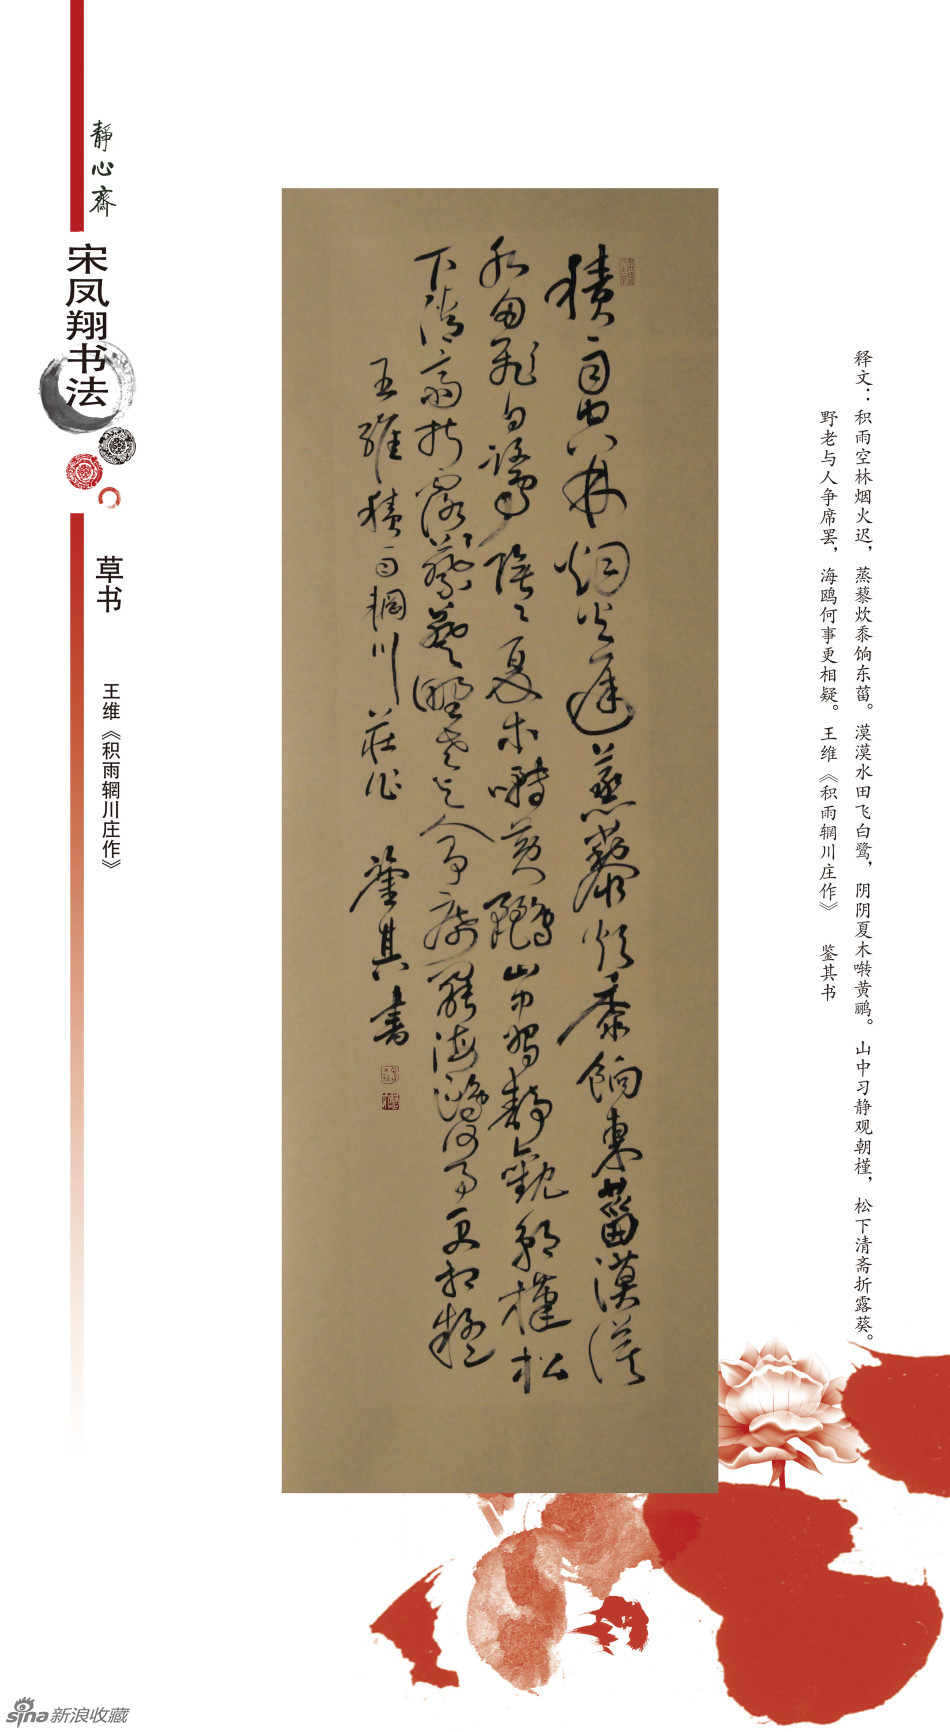 靜心齋
宋凤翔书法
草书
王维《积雨辋川庄作》
積雨空林烟火遲蒸藜炊黍餉東菑漠漠
水田飛白鷺陰々夏木囀黃鸝山中習靜觀朝槿松
下清齋折露葵野老與人爭席罷海鷗何事更相疑
王維積雨輞川莊作 鑒其書
释文：积雨空林烟火迟，蒸藜炊黍饷东菑。漠漠水田飞白鹭，阴阴夏木啭黄鹂。山中习静观朝槿，松下清斋折露葵。
野老与人争席罢，海鸥何事更相疑。王维《积雨辋川庄作》 鉴其书
sina新浪收藏